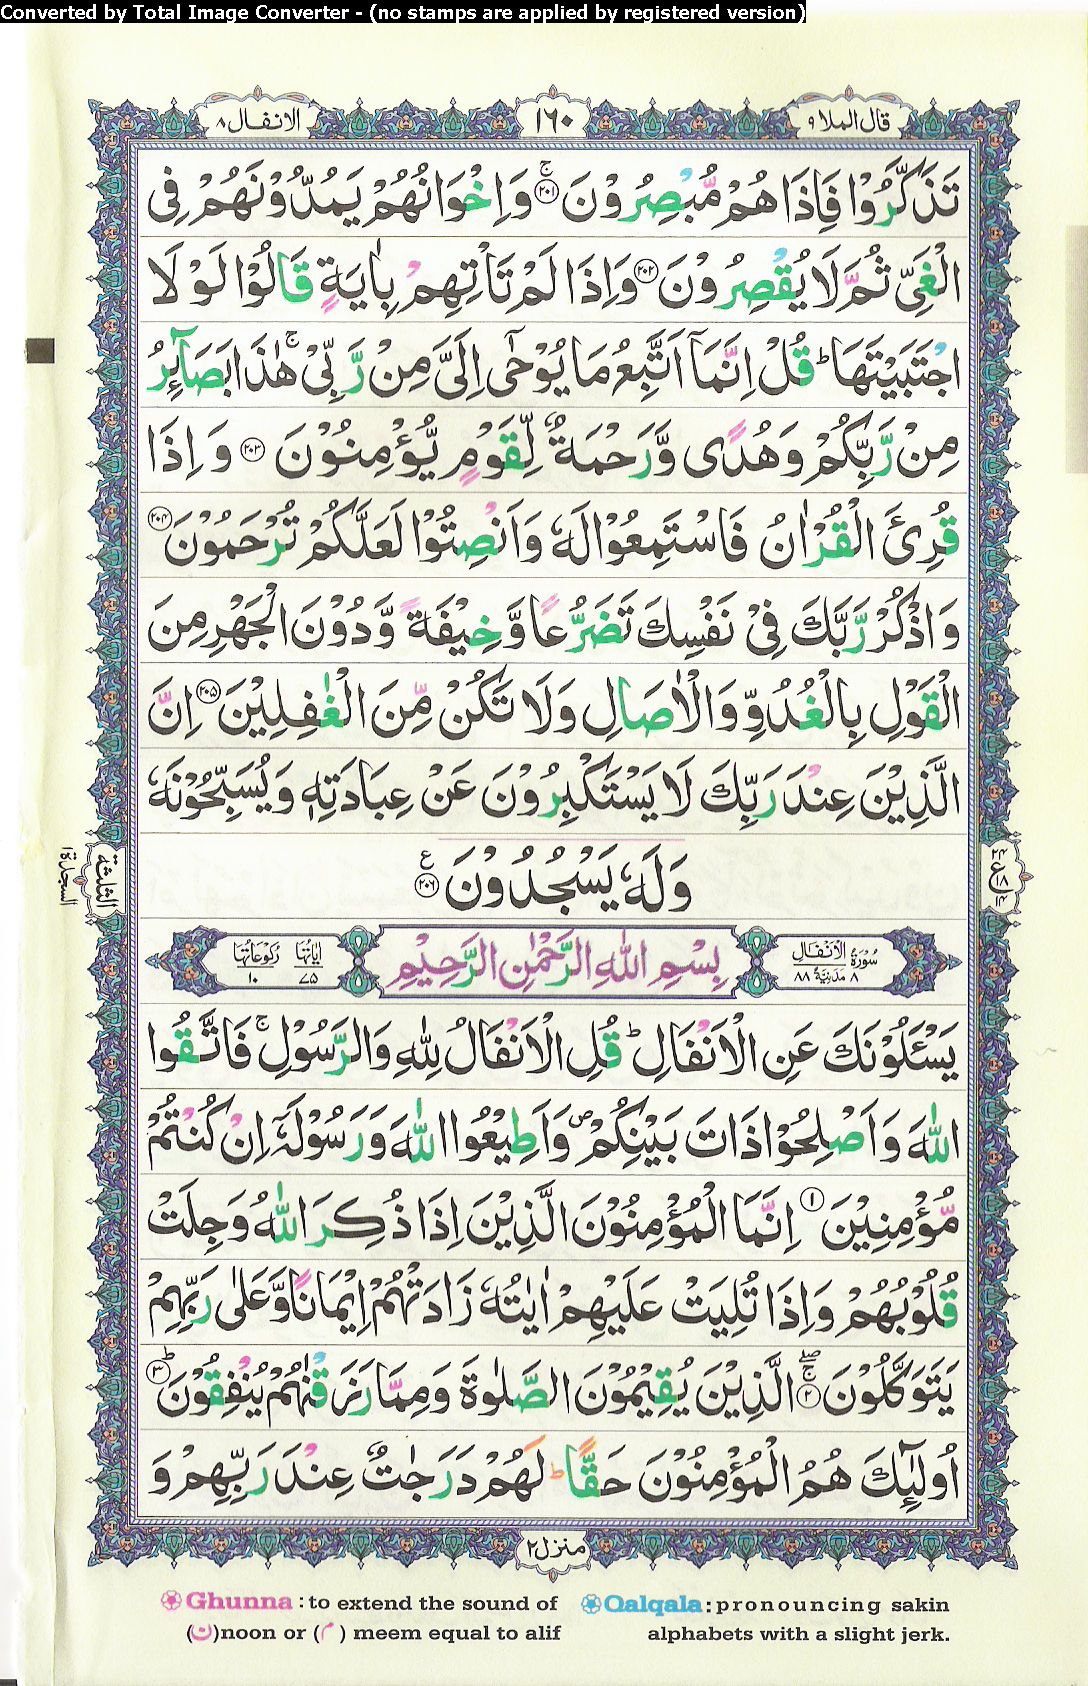 Converted by Total Image Converter - (no stamps are applied by registered version)
قال الملا ۹
۱۶۰
الانفال ۸
تَذَكَّرُوْا فَاِذَا هُمْ مُّبْصِرُوْنَ ۚ ۲۰۱ وَاِخْوَانُهُمْ يَمُدُّوْنَهُمْ فِى
الْغَىِّ ثُمَّ لَا يُقْصِرُوْنَ ۲۰۲ وَاِذَا لَمْ تَاْتِهِمْ بِاٰيَةٍ قَالُوْا لَوْ لَا
اجْتَبَيْتَهَا ؕ قُلْ اِنَّمَاۤ اَتَّبِعُ مَا يُوْحٰٓى اِلَىَّ مِنْ رَّبِّىْ ۚ هٰذَا بَصَآئِرُ
مِنْ رَّبِّكُمْ وَهُدًى وَّرَحْمَةٌ لِّقَوْمٍ يُّؤْمِنُوْنَ ۲۰۳ وَاِذَا
قُرِئَ الْقُرْاٰنُ فَاسْتَمِعُوْا لَهٗ وَاَنْصِتُوْا لَعَلَّكُمْ تُرْحَمُوْنَ ۲۰۴
وَاذْكُرْ رَّبَّكَ فِىْ نَفْسِكَ تَضَرُّعًا وَّخِيْفَةً وَّدُوْنَ الْجَهْرِ مِنَ
الْقَوْلِ بِالْغُدُوِّ وَالْاٰصَالِ وَلَا تَكُنْ مِّنَ الْغٰفِلِيْنَ ۲۰۵ اِنَّ
الَّذِيْنَ عِنْدَ رَبِّكَ لَا يَسْتَكْبِرُوْنَ عَنْ عِبَادَتِهٖ وَيُسَبِّحُوْنَهٗ
وَلَهٗ يَسْجُدُوْنَ ۲۰۶ ع
الثلثة
السجدة ۱
۲۴
ع
۱۸
۱۴
سُوْرَةُ الْاَنْفَالِ
۸ مَدَنِيَّةٌ ۸۸
بِسْمِ اللّٰهِ الرَّحْمٰنِ الرَّحِيْمِ
اٰيَاتُهَا ۷۵
رُكُوْعَاتُهَا ۱۰
يَسْـَٔلُوْنَكَ عَنِ الْاَنْفَالِ ؕ قُلِ الْاَنْفَالُ لِلّٰهِ وَالرَّسُوْلِ ۚ فَاتَّقُوا
اللّٰهَ وَاَصْلِحُوْا ذَاتَ بَيْنِكُمْ ۖ وَاَطِيْعُوا اللّٰهَ وَرَسُوْلَهٗۤ اِنْ كُنْتُمْ
مُّؤْمِنِيْنَ ۱ اِنَّمَا الْمُؤْمِنُوْنَ الَّذِيْنَ اِذَا ذُكِرَ اللّٰهُ وَجِلَتْ
قُلُوْبُهُمْ وَاِذَا تُلِيَتْ عَلَيْهِمْ اٰيٰتُهٗ زَادَتْهُمْ اِيْمَانًا وَّعَلٰى رَبِّهِمْ
يَتَوَكَّلُوْنَ ۲ ۚ ۖ الَّذِيْنَ يُقِيْمُوْنَ الصَّلٰوةَ وَمِمَّا رَزَقْنٰهُمْ يُنْفِقُوْنَ ؕ ۳
اُولٰٓئِكَ هُمُ الْمُؤْمِنُوْنَ حَقًّا ؕ لَهُمْ دَرَجٰتٌ عِنْدَ رَبِّهِمْ وَ
منزل ۲
Ghunna : to extend the sound of
(ن)noon or (م) meem equal to alif
Qalqala : pronouncing sakin
alphabets with a slight jerk.